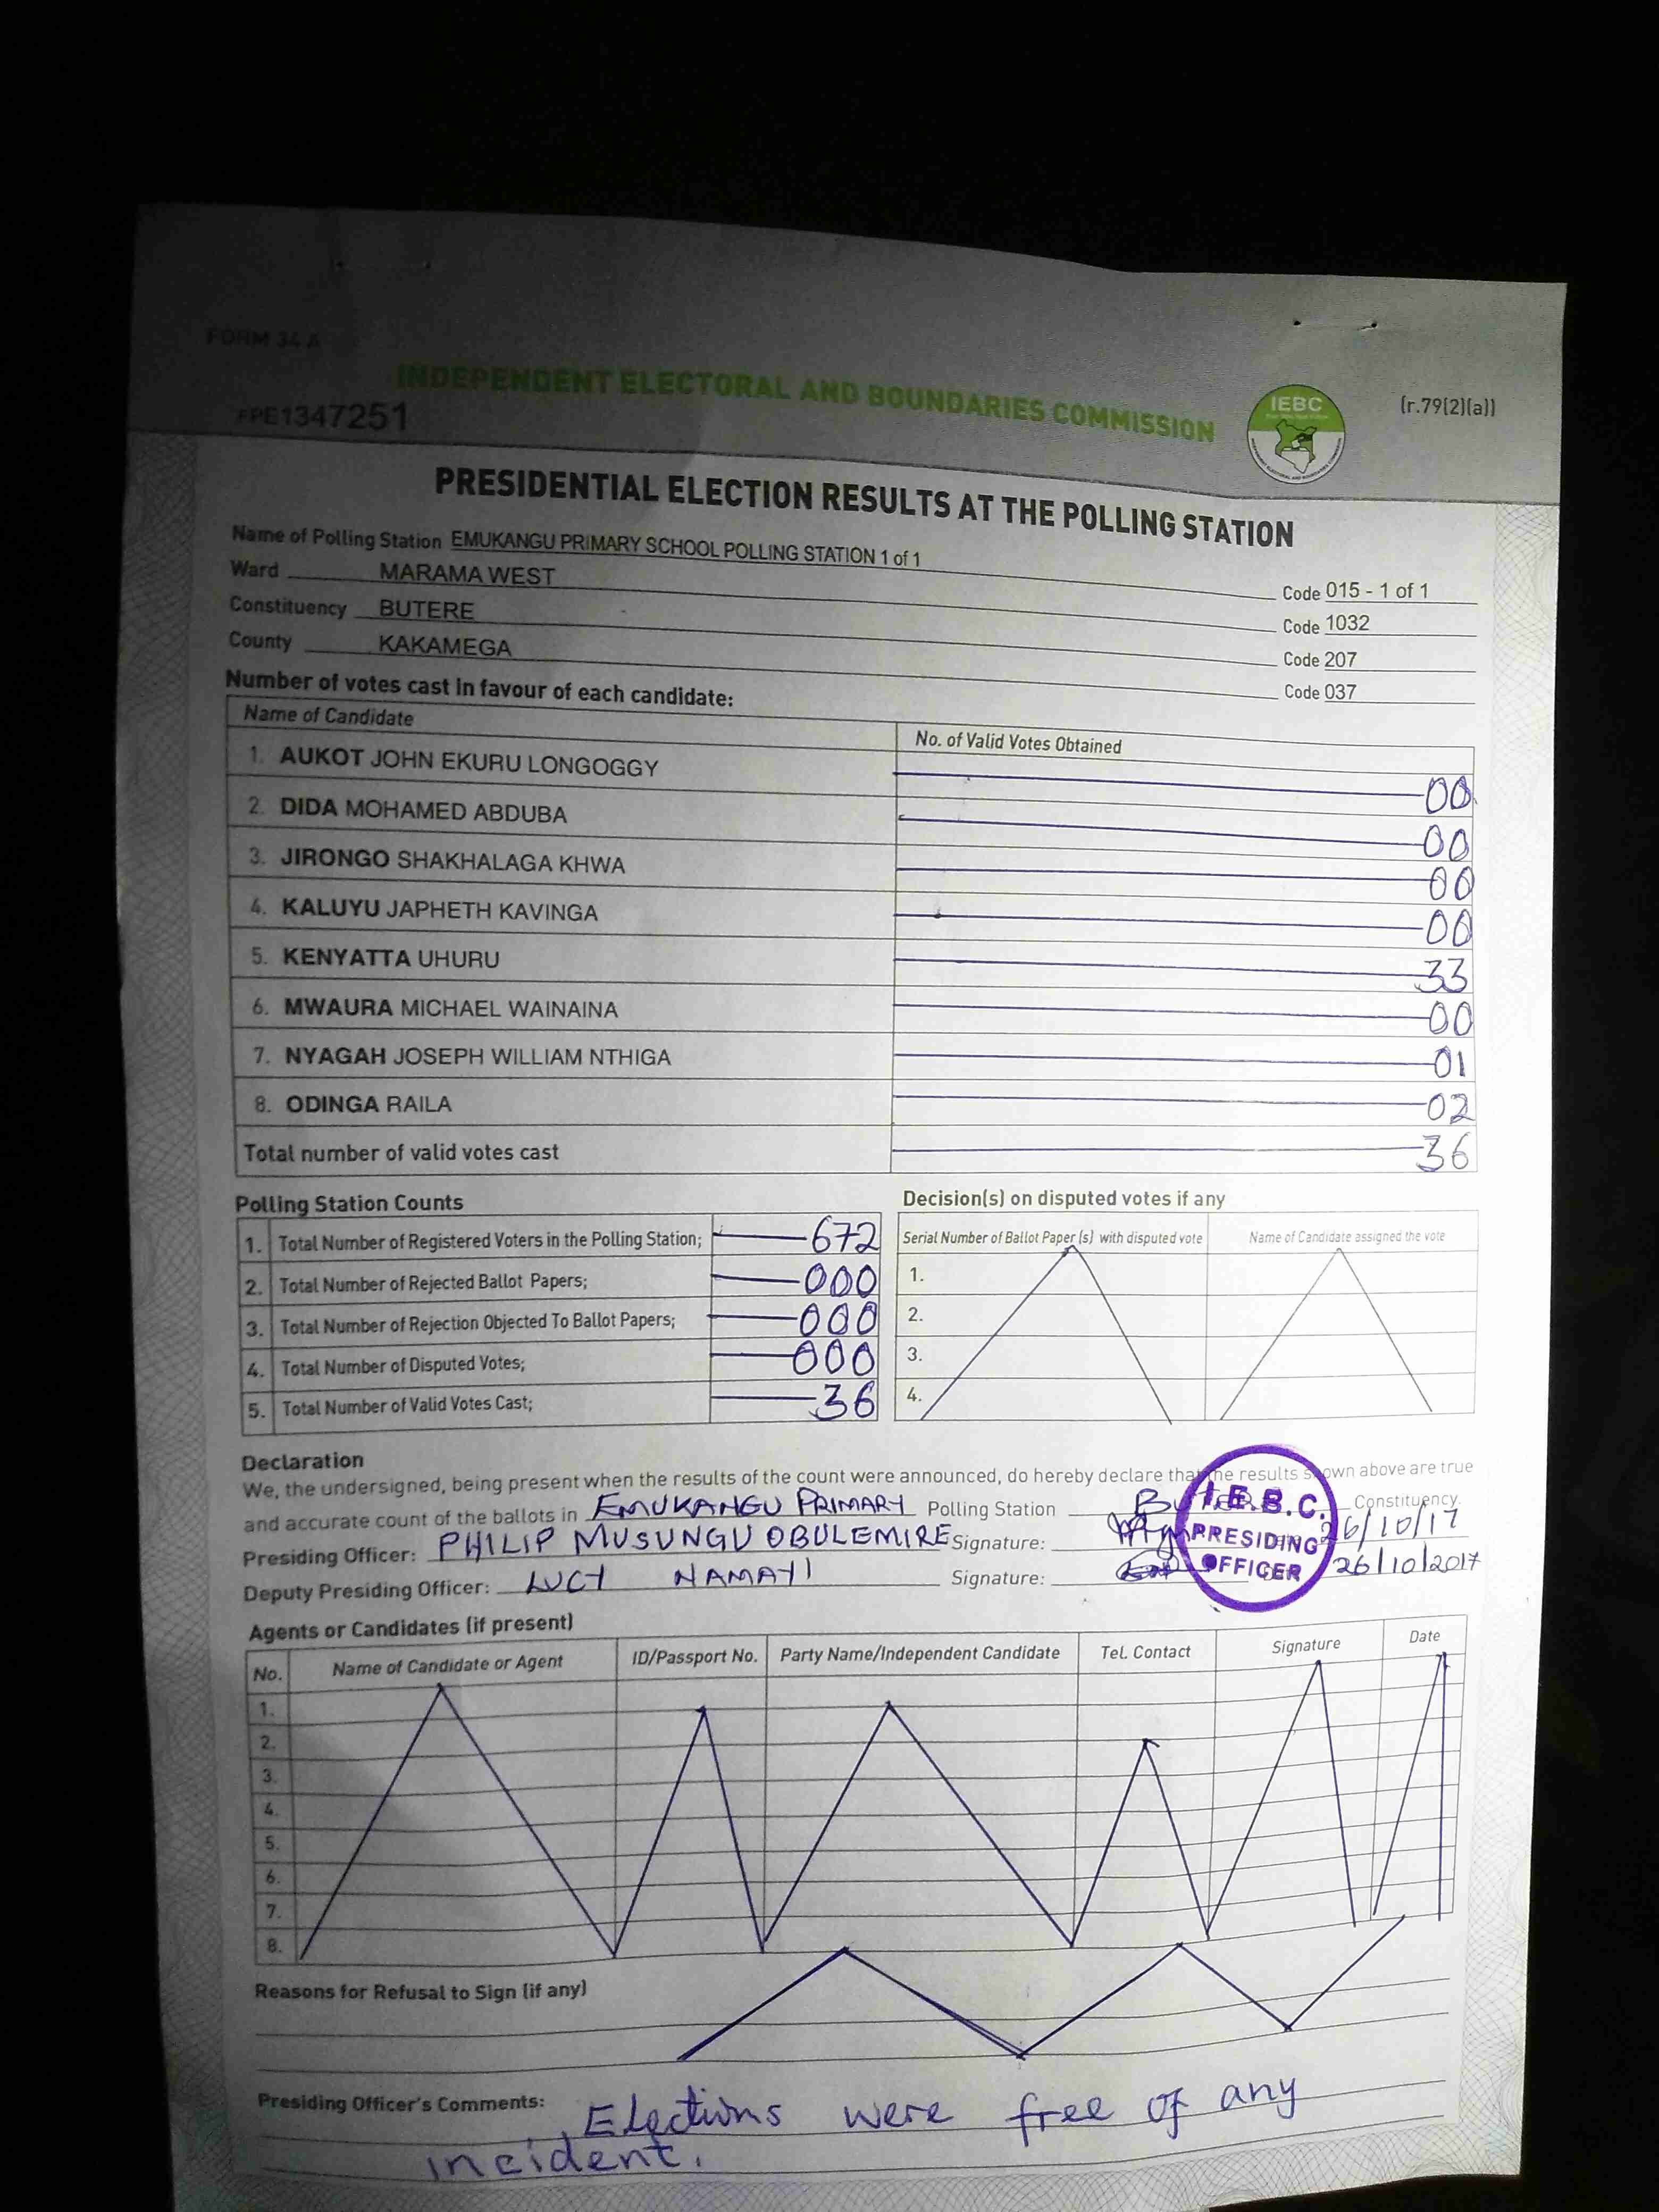 FORM 34 A
INDEPENDENT ELECTORAL AND BOUNDARIES COMMISSION
IEBC
(r.79(2)(a))
PE1347251
PRESIDENTIAL ELECTION RESULTS AT THE POLLING STATION
Name of Polling Station EMUKANGU PRIMARY SCHOOL POLLING STATION 1 of 1 Code 015 - 1 of 1
Ward MARAMA WEST Code 1032
Constituency BUTERE Code 207
County KAKAMEGA Code 037
Number of votes cast in favour of each candidate:
Name of Candidate No. of Valid Votes Obtained
1. AUKOT JOHN EKURU LONGOGGY 00
2. DIDA MOHAMED ABDUBA 00
3. JIRONGO SHAKHALAGA KHWA 00
4. KALUYU JAPHETH KAVINGA 00
5. KENYATTA UHURU 33
6. MWAURA MICHAEL WAINAINA 00
7. NYAGAH JOSEPH WILLIAM NTHIGA 01
8. ODINGA RAILA 02
Total number of valid votes cast 36
Polling Station Counts
1. Total Number of Registered Voters in the Polling Station; 672
2. Total Number of Rejected Ballot Papers; 000
3. Total Number of Rejection Objected To Ballot Papers; 000
4. Total Number of Disputed Votes; 000
5. Total Number of Valid Votes Cast; 36
Decision(s) on disputed votes if any
Serial Number of Ballot Paper (s) with disputed vote Name of Candidate assigned the vote
1.
2.
3.
4.
Declaration
We, the undersigned, being present when the results of the count were announced, do hereby declare that the results shown above are true
and accurate count of the ballots in EMUKANGU PRIMARY Polling Station Constituency.
Presiding Officer: PHILIP MUSUNGU OBULEMIRE Signature: 26/10/17
Deputy Presiding Officer: LUCY NAMAYI Signature: 26/10/2017
I.E.B.C.
PRESIDING
OFFICER
Agents or Candidates (if present)
No. Name of Candidate or Agent ID/Passport No. Party Name/Independent Candidate Tel. Contact Signature Date
1.
2.
3.
4.
5.
6.
7.
8.
Reasons for Refusal to Sign (if any)
Presiding Officer's Comments: Elections were free of any
incident.